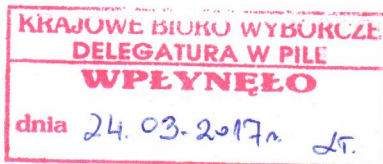 KRAJOWE BIURO WYBORCZE
DELEGATURA W PILE
WPŁYNĘŁO
dnia 24. 03. 2017r.